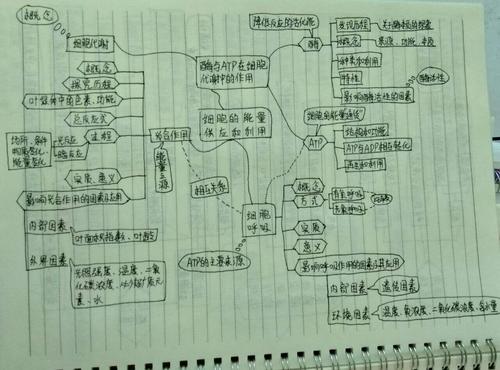 概念
细胞代谢
降低反应的活化能
酶与ATP在细胞
代谢中的作用
酶
发现历程
关于酶本质的探索
概念
来源、功能、本质
种类和利用
特性
影响酶活性的因素
酶活性
细胞的能量
供应和利用
细胞的能量通货
ATP
结构和功能
ATP与ADP相互转化
再生和利用
光合作用
能量之源
概念
探究历程
叶绿体中的色素、功能
总反应式
过程
光反应
暗反应
场所、条件
物质变化、
能量变化
实质、意义
影响光合作用的因素及应用
内部因素
叶面积指数、叶龄
外界因素
光照强度、温度、二氧
化碳浓度、必需矿质元
素、水
相互关系
ATP的主要来源
细胞
呼吸
概念
方式
有氧呼吸
无氧呼吸
实质
意义
影响呼吸作用的因素及其应用
内部因素
遗传因素
环境因素
温度、氧浓度、二氧化碳浓度、含水量